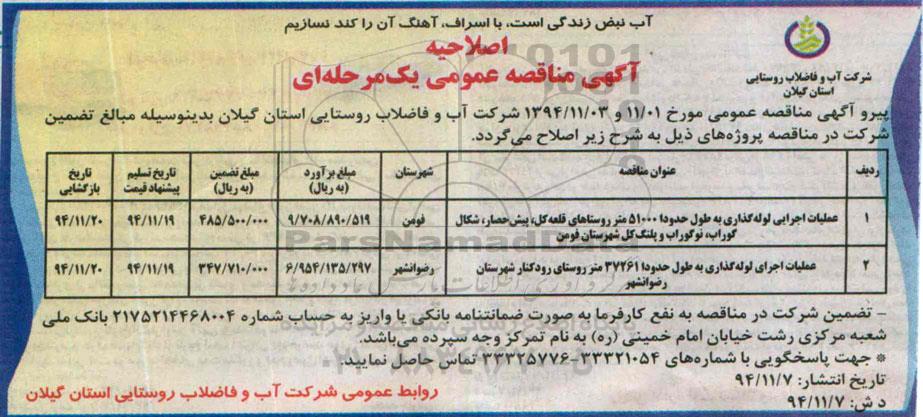 آب نبض زندگی است، با اسراف، آهنگ آن را کند نسازیم
شرکت آب و فاضلاب روستایی
استان گیلان
اصلاحیه
آگهی مناقصه عمومی یک‌مرحله‌ای
پیرو آگهی مناقصه عمومی مورخ ۱۱/۰۱ و ۱۳۹۴/۱۱/۰۳ شرکت آب و فاضلاب روستایی استان گیلان بدینوسیله مبالغ تضمین
شرکت در مناقصه پروژه‌های ذیل به شرح زیر اصلاح می‌گردد.
ردیف عنوان مناقصه شهرستان مبلغ برآورد (به ریال) مبلغ تضمین (به ریال) تاریخ تسلیم پیشنهاد قیمت تاریخ بازگشایی
۱ عملیات اجرایی لوله‌گذاری به طول حدودا ۵۱۰۰۰ متر روستاهای قلعه‌کل، پیش‌حصار، شکال گوراب، نوگوراب و پلنگ‌کل شهرستان فومن فومن ۹/۷۰۸/۸۹۰/۵۱۹ ۴۸۵/۵۰۰/۰۰۰ ۹۴/۱۱/۱۹ ۹۴/۱۱/۲۰
۲ عملیات اجرای لوله‌گذاری به طول حدودا ۳۷۲۶۱ متر روستای رودکنار شهرستان رضوانشهر رضوانشهر ۶/۹۵۴/۱۳۵/۲۹۷ ۳۴۷/۷۱۰/۰۰۰ ۹۴/۱۱/۱۹ ۹۴/۱۱/۲۰
- تضمین شرکت در مناقصه به نفع کارفرما به صورت ضمانتنامه بانکی یا واریز به حساب شماره ۲۱۷۵۲۱۴۴۶۸۰۰۴ بانک ملی
شعبه مرکزی رشت خیابان امام خمینی (ره) به نام تمرکز وجوه سپرده می‌باشد.
* جهت پاسخگویی با شماره‌های ۳۳۳۲۱۰۵۴-۳۳۳۲۵۷۷۶ تماس حاصل نمایید.
تاریخ انتشار: ۹۴/۱۱/۷
د ش: ۹۴/۱۱/۷
روابط عمومی شرکت آب و فاضلاب روستایی استان گیلان
ParsNamadData